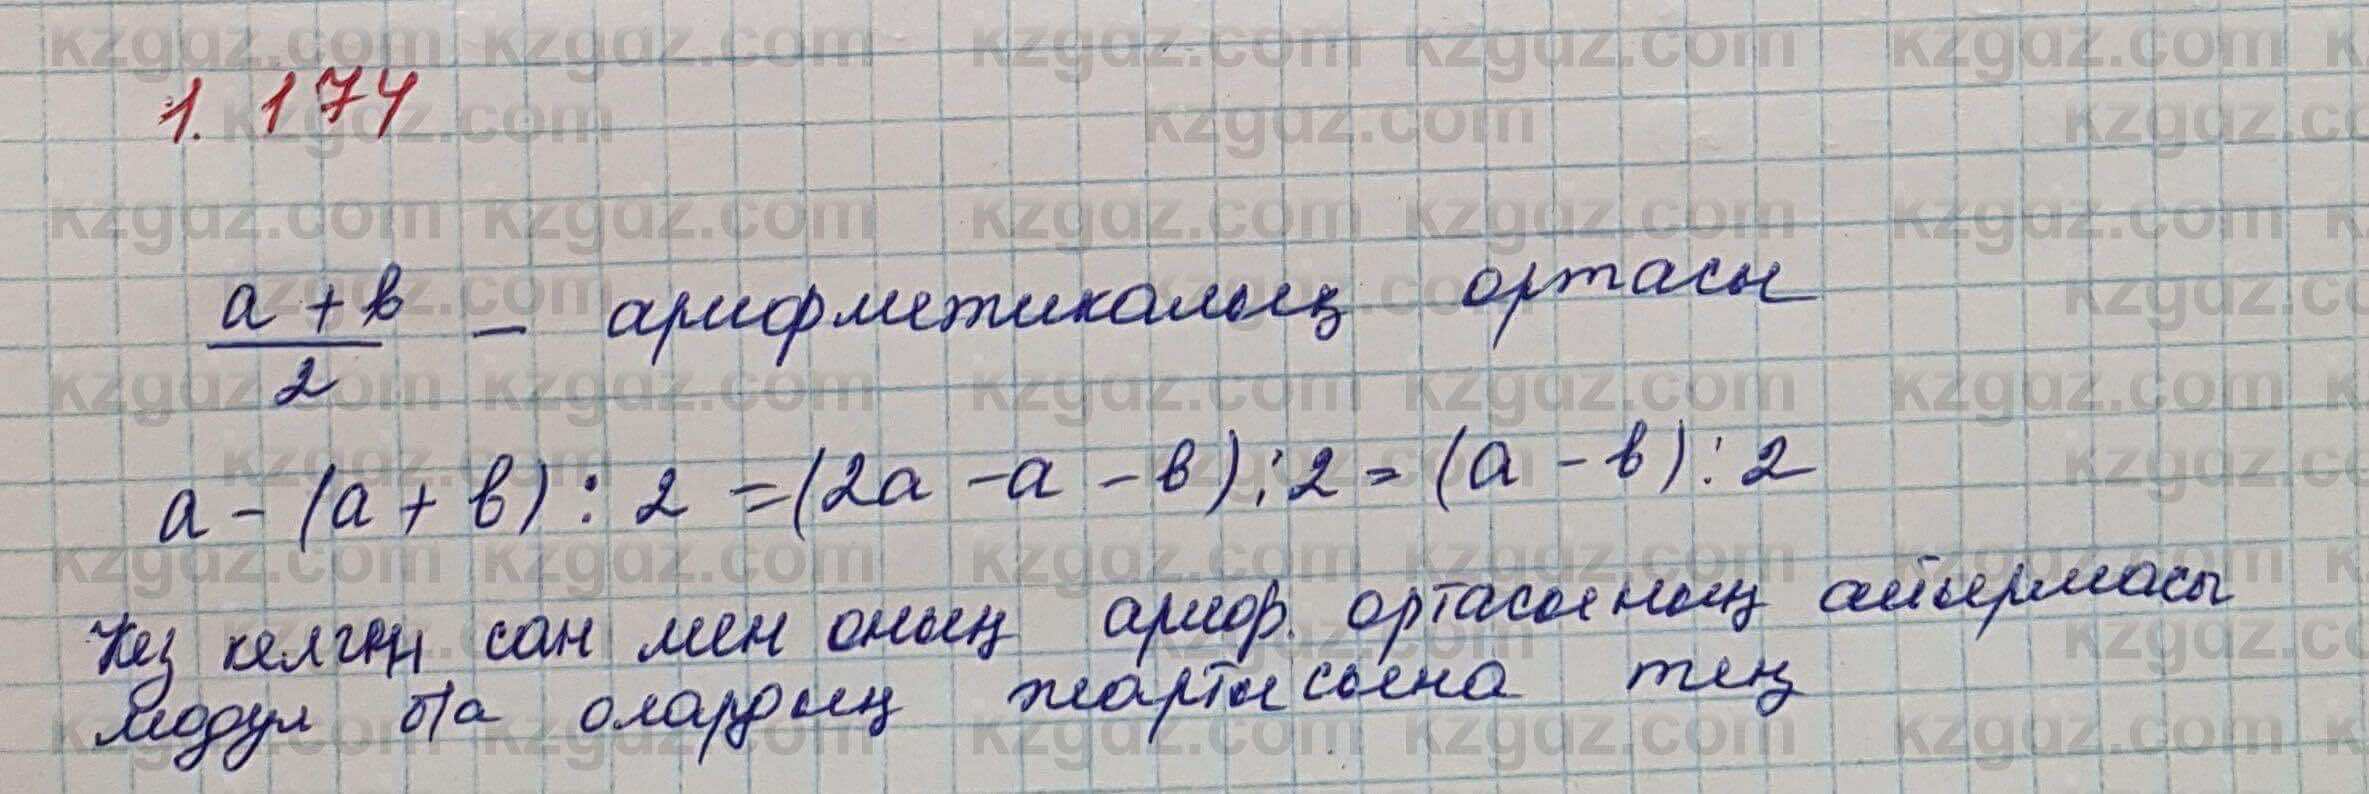 1.174
a + b / 2 - арифметикалық ортасы
a - (a + b) : 2 = (2a - a - b) : 2 = (a - b) : 2
Кез келген сан мен оның ариф. ортасының айырмасы
модул б/а олардың жартысына тең